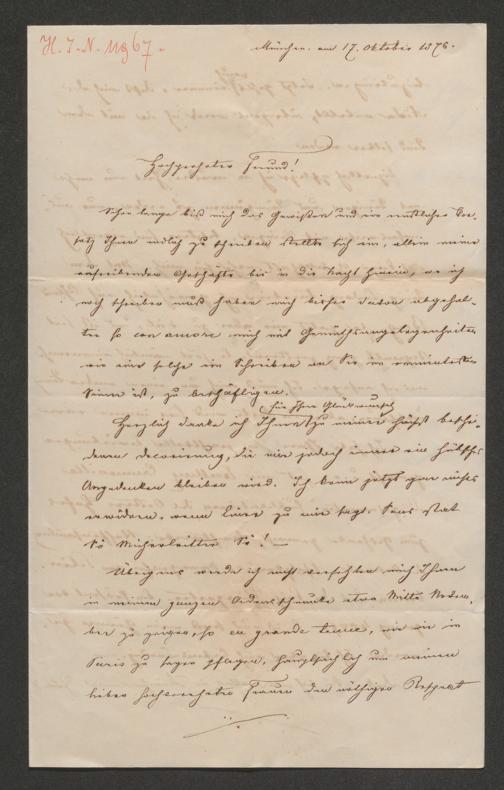 H. I. N. 11967.
München. am 17. Oktober 1876.
Hochverehrter Freund!
Schon lange biß mich das Gewißen und ein ernstlicher Vor-
satz Ihnen endlich zu schreiben stellte sich ein, allein meine
aufreibenden Geschäfte bis in die Nacht hinein, wo ich
noch schreiben muß haben mich bisher davon abgehal-
ten so con amore mich mit Gemüthsangelegenheiten
wie eine solche ein Schreiben an Sie im eminentesten
Sinne ist, zu beschäftigen.
für Ihren Glückwunsch
Herzlich danke ich Ihnen zu meiner höchst beschei-
denen Decorierung, die mir jedoch immer ein hübsches
Angedenken bleiben wird. Ich kann jetzt gar nichts
erwidern, wenn Einer zu mir sagt: Sans statt
Sö !
Übrigens werde ich nicht verfehlen mich Ihnen
in meinem ganzen Ordensschmucke etwa Mitte Novem-
ber zu zeigen, so en grande tenue, wie wir in
Paris zu sagen pflegen, hauptsächlich um meinen
lieben hochverehrten Frauen den nöthigen Respect